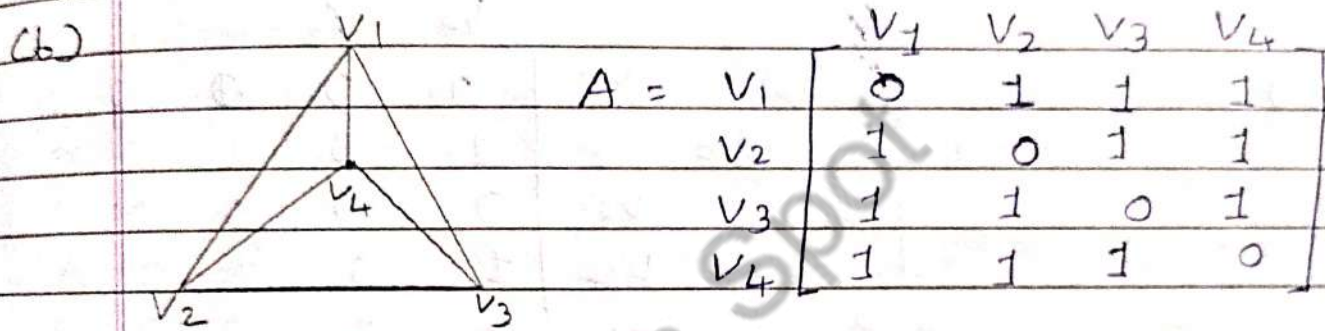 (b)
V1
V4
V2 V3
V1 V2 V3 V4
A = V1 0 1 1 1
V2 1 0 1 1
V3 1 1 0 1
V4 1 1 1 0
Spot